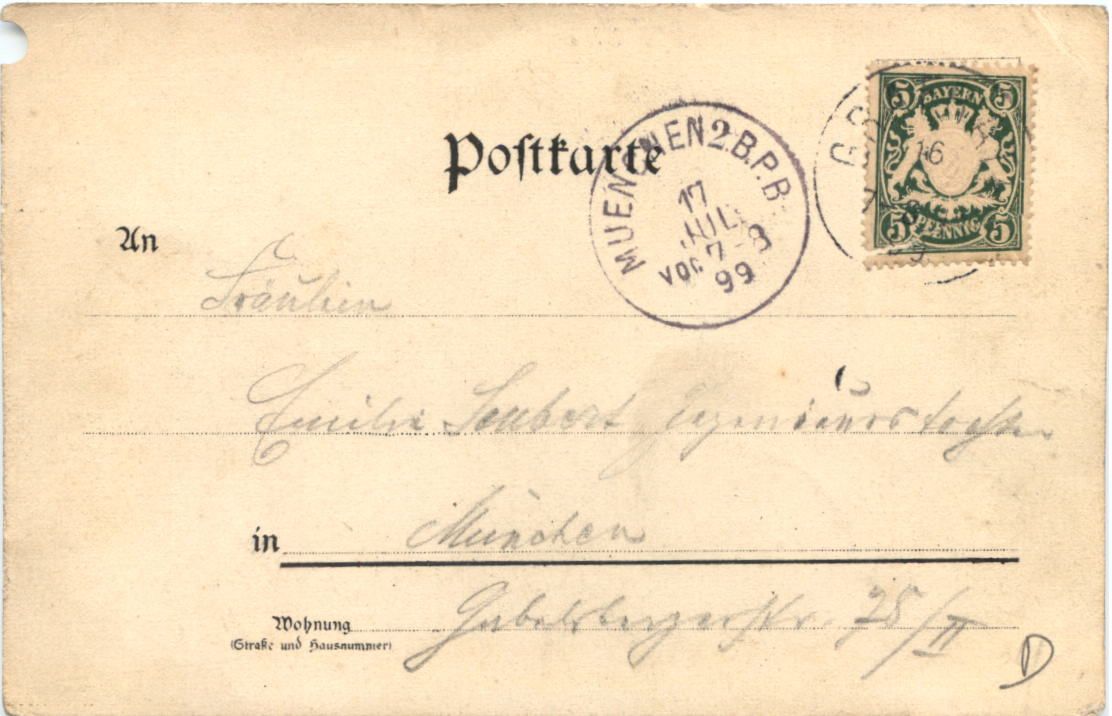 Postkarte
MUENCHEN 2 B.P.B
17
JUL
VOR 7-8
99
BAYERN
5 5
16
5 5
PFENNIG
An
Fräulein
Emilie Ingenieurstochter
in München
Wohnung Gabelsbergerstr. 78/II
(Straße und Hausnummer)
D